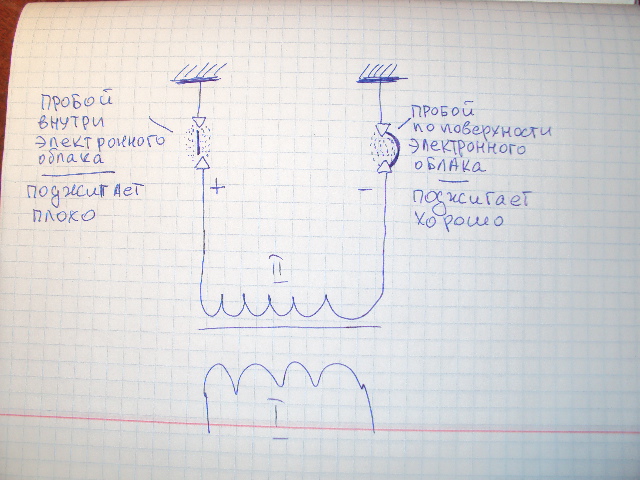 ПРОБОЙ
ВНУТРИ
ЭЛЕКТРОННОГО
ОБЛАКА
ПОДЖИГАЕТ
ПЛОКО
ПРОБОЙ
ПО ПОВЕРХНОСТИ
ЭЛЕКТРОННОГО
ОБЛАКА
ПОДЖИГАЕТ
ХОРОШО
+
−
II
I